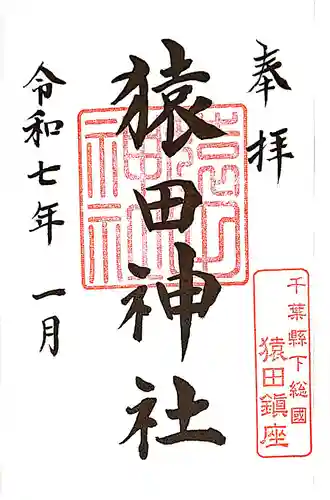 奉拝
千葉縣下総國
猿田鎮座
猿田神社
猿田神社
令和七年 一月